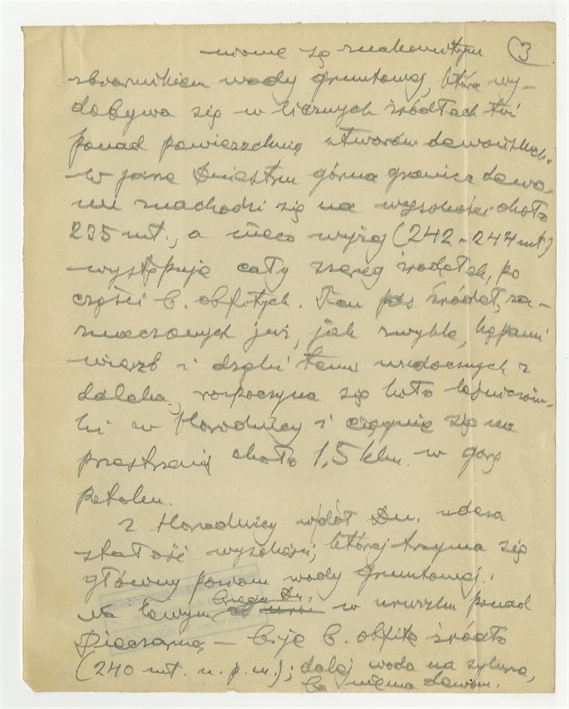 są znakomitym (3
zbiornikiem wody gruntowej, która wy-
dobywa się w licznych źródłach tuż
ponad powierzchnią utworów dewońskich.
W jarze Dniestru górna granica dewo-
nu znachodzi się na wysokości około
235 mt., a nieco wyżej (242-244 mt)
występuje cały szereg źródeł, po
części b. obfitych. Ten pas źródeł, za-
znaczonych już, jak zwykle, kępami
wierzb i dzięki temu widocznych z
daleka, rozpoczyna się koło leśniczów-
ki w Horodnicy i ciągnie się na
przestrzeni około 1,5 klm. w górę
potoku.
Z Horodnicy wpół Dn. uderza
stałość wysokości, której trzyma się
główny poziom wody gruntowej.
Na lewym brzegu Dn. w ponad
– bije b. obfite źródło
(240 mt. n. p. m.); dalej woda na
bo niema dewonu.